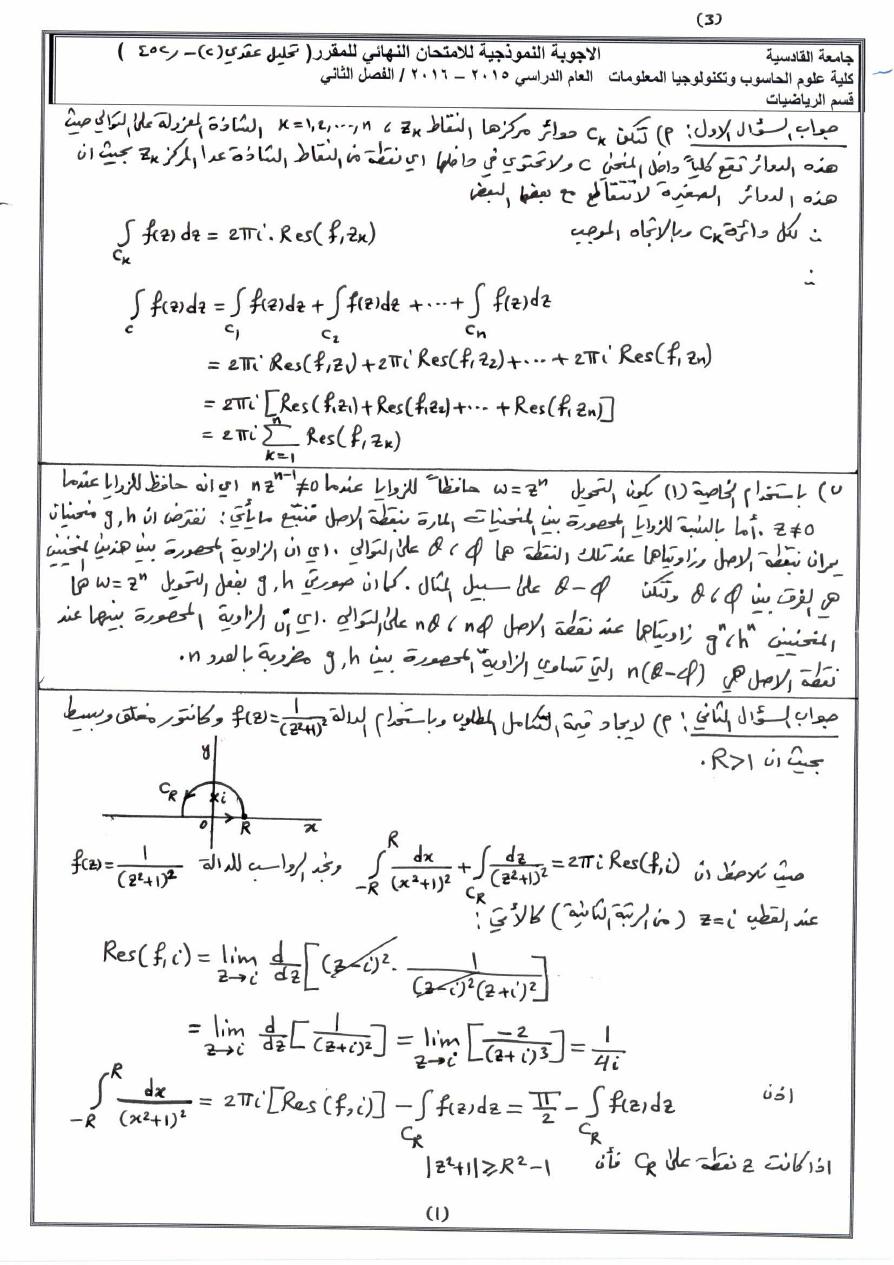 (3)
جامعة القادسية
الاجوبة النموذجية للامتحان النهائي للمقرر( تحليل عقدي(٢)-ر٤٥٢ )
كلية علوم الحاسوب وتكنولوجيا المعلومات العام الدراسي ٢٠١٥ – ٢٠١٦ / الفصل الثاني
قسم الرياضيات
جواب السؤال الاول: P) لتكن Cκ دوائر مركزها النقاط zκ ، κ=1,2,...,n الشاذة المعزولة على التوالي حيث
هذه الدوائر تقع كلياً داخل المنحني C ولا تحتوي في داخلها اي نقطة من النقاط الشاذة عدا المركز zκ بحيث ان
هذه الدوائر الصغيرة لا تتقاطع مع بعضها البعض
∴ لكل دائرة Cκ وبالاتجاه الموجب ∫_{Cκ} f(z) dz = 2πi . Res(f,zκ)
∴
∫_c f(z)dz = ∫_{C1} f(z)dz + ∫_{C2} f(z)dz + ··· + ∫_{Cn} f(z)dz
= 2πi Res(f,z1) + 2πi Res(f,z2) + ··· + 2πi Res(f,zn)
= 2πi [Res(f,z1) + Res(f,z2) + ··· + Res(f,zn)]
= 2πi ∑_{κ=1}^{n} Res(f,zκ)
ب) باستخدام الخاصية (1) يكون التحويل w=z^n حافظاً للزوايا عندما nz^{n-1}≠0 اي انه حافظ للزوايا عندما
z≠0 . أما بالنسبة للزوايا المحصورة بين المنحنيات المارة بنقطة الاصل فنتبع مايأتي: نفترض ان g,h منحنيان
يمران بنقطة الاصل وزاويتاهما عند تلك النقطة هما φ ، θ على التوالي . اي ان الزاوية المحصورة بين هذين المنحنيين
هي الفرق بين φ ، θ ولتكن θ-φ على سبيل المثال . كما ان صورتي g,h بفعل التحويل w=z^n هما
المنحنيين g^n ، h^n زاويتاهما عند نقطة الاصل nθ ، nφ على التوالي . اي ان الزاوية المحصورة بينهما عند
نقطة الاصل هي n(θ-φ) التي تساوي الزاوية المحصورة بين g,h مضروبة بالعدد n.
جواب السؤال الثاني: P) لايجاد قيمة التكامل المطلوب وباستخدام الدالة f(z)=1/(z²+1)² وكانتور مغلق وبسيط
بحيث ان R>1.
y
C_R
xi
0
R
x
حيث نلاحظ ان ∫_{-R}^{R} dx/(x²+1)² + ∫_{C_R} dz/(z²+1)² = 2πi Res(f,i) ونجد الرواسب للدالة f(z)=1/(z²+1)²
عند القطب z=i (من الرتبة الثانية) كالأتي:
Res(f,i) = lim_{z→i} d/dz [(z-i)² . 1/((z-i)²(z+i)²)]
= lim_{z→i} d/dz [1/(z+i)²] = lim_{z→i} [-2/(z+i)³] = 1/4i
اذن ∫_{-R}^{R} dx/(x²+1)² = 2πi [Res(f,i)] - ∫_{C_R} f(z)dz = π/2 - ∫_{C_R} f(z)dz
اذا كانت z نقطة على C_R فأن |z²+1| ≥ R²-1
(1)